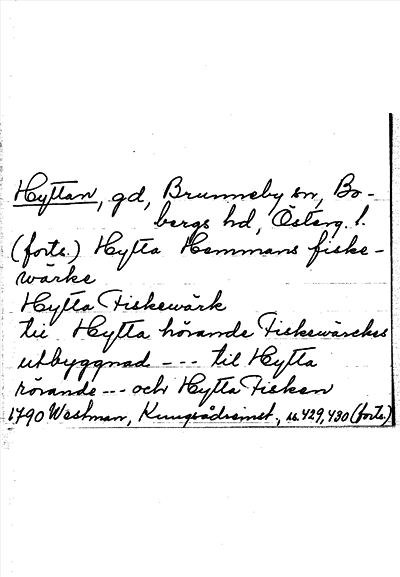 Hyttan, gd, Brunneby sn, Bo-
bergs hd, Österg. l.
(forts.) Hytta Hemmans fiske-
wärke
Hytta Fiskewärk
till Hytta hörande Fiskewärckes
utbyggnad --- til Hytta
hörande --- och Hytta Fisken
1790 Westman, Kungsådremst., ss. 429, 430 (forts.)